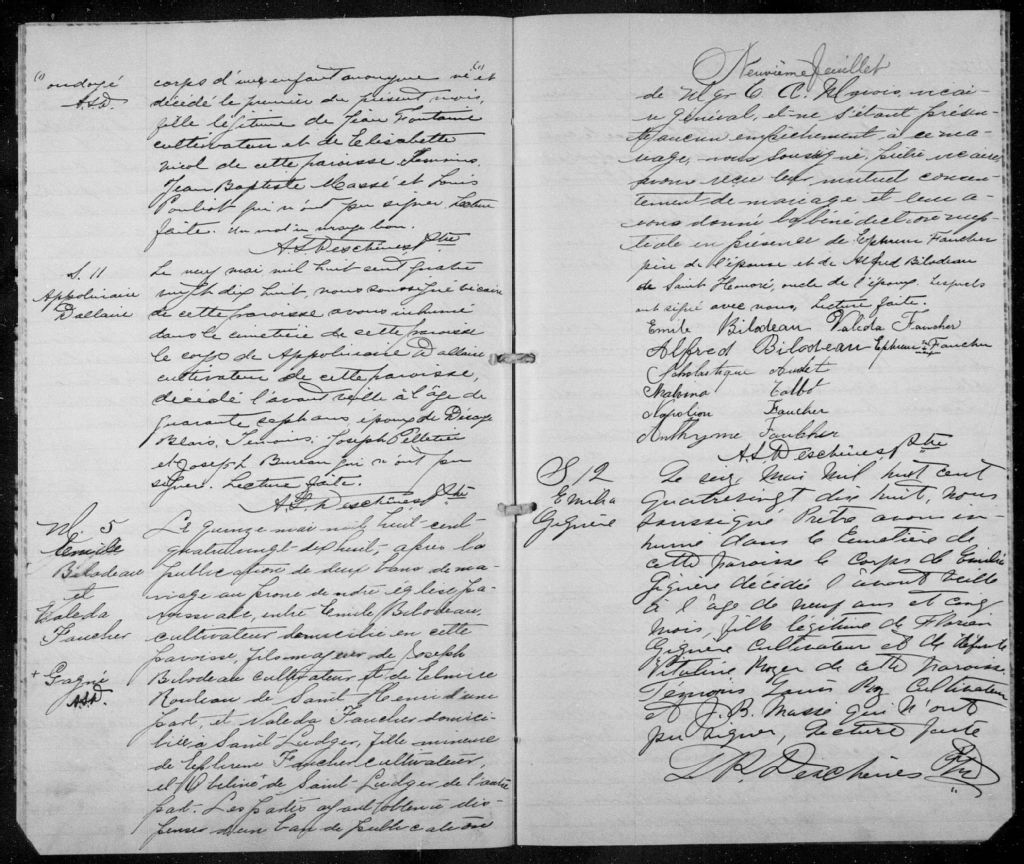 (1) ondoyé
A.S.D.
corps d'une enfant anonyme (1) né et
décédé le premier du présent mois,
fille légitime de Jean Fontaine
cultivateur et de Elisabette
Nicol de cette paroisse. Témoins,
Jean Baptiste Massé et Louis
Pouliot qui n'ont pu signer. Lecture
faite. Un mot en marge bon.
A.S. Deschênes Ptre
S. 11
Appolinaire
Dallaire
Le neuf mai mil huit cent quatre
vingt dix huit, nous soussigné vicaire
de cette paroisse avons inhumé
dans le cimetière de cette paroisse
le corps de Appolinaire Dallaire
cultivateur de cette paroisse,
décédé l'avant veille à l'âge de
quarante sept ans époux de
Blais. Témoins: Joseph Pelletier
et Joseph Bureau qui n'ont pu
signer. Lecture faite.
A.S. Deschênes Ptre
M. 5
Emile
Bilodeau
et
Valeda
Faucher
+ Gagné
A.S.D.
Le quinze mai mil huit-cent-
quatrevingt-dix huit, après la
publication de deux bans de ma-
riage au prone de notre église pa-
roissiale, entre Emile Bilodeau,
cultivateur domicilié en cette
paroisse, fils majeur de Joseph
Bilodeau cultivateur et de Elmire
Rouleau de Saint-Henri d'une
part, et Valeda Faucher domici-
liée à Saint Ludger, fille mineure
de Ephrem Faucher cultivateur,
et Obeline + de Saint-Ludger de l'autre
part. Les parties ayant obtenu dis-
pense d'un ban de publication
Neuvième feuillet
de Mgr C. A. Marois, vicai-
re Général, et ne s'étant présen-
té aucun empêchement à ce ma-
riage, nous soussigné, prêtre vicaire,
avons reçu leur mutuel consen-
tement de mariage et leur a-
vons donné la bénédiction nup-
tiale en présence de Ephrem Faucher
père de l'épouse et de Alfred Bilodeau
de Saint Henri, oncle de l'époux. Lesquels
ont signé avec nous. Lecture faite.
Emile Bilodeau Valeda Faucher
Alfred Bilodeau Ephrem Faucher
Scholastique Audet
Malvina Talbot
Napoléon Faucher
Anthyme Faucher
A.S. Deschênes Ptre
S 12
Emilia
Giguère
Le seize Mai mil huit cent
quatrevingt dix huit, nous
soussigné Prêtre avons in-
humé dans le Cimetière de
cette paroisse le corps de Emilia
Giguère décédée l'avant veille
à l'âge de neuf ans et cinq
mois, fille légitime de Florian
Giguère cultivateur et de défunte
Vitaline Roger de cette paroisse
Témoins Louis Roy Cultivateur
et J.B. Massé qui n'ont
pu signer, lecture faite
D R Deschênes Ptre